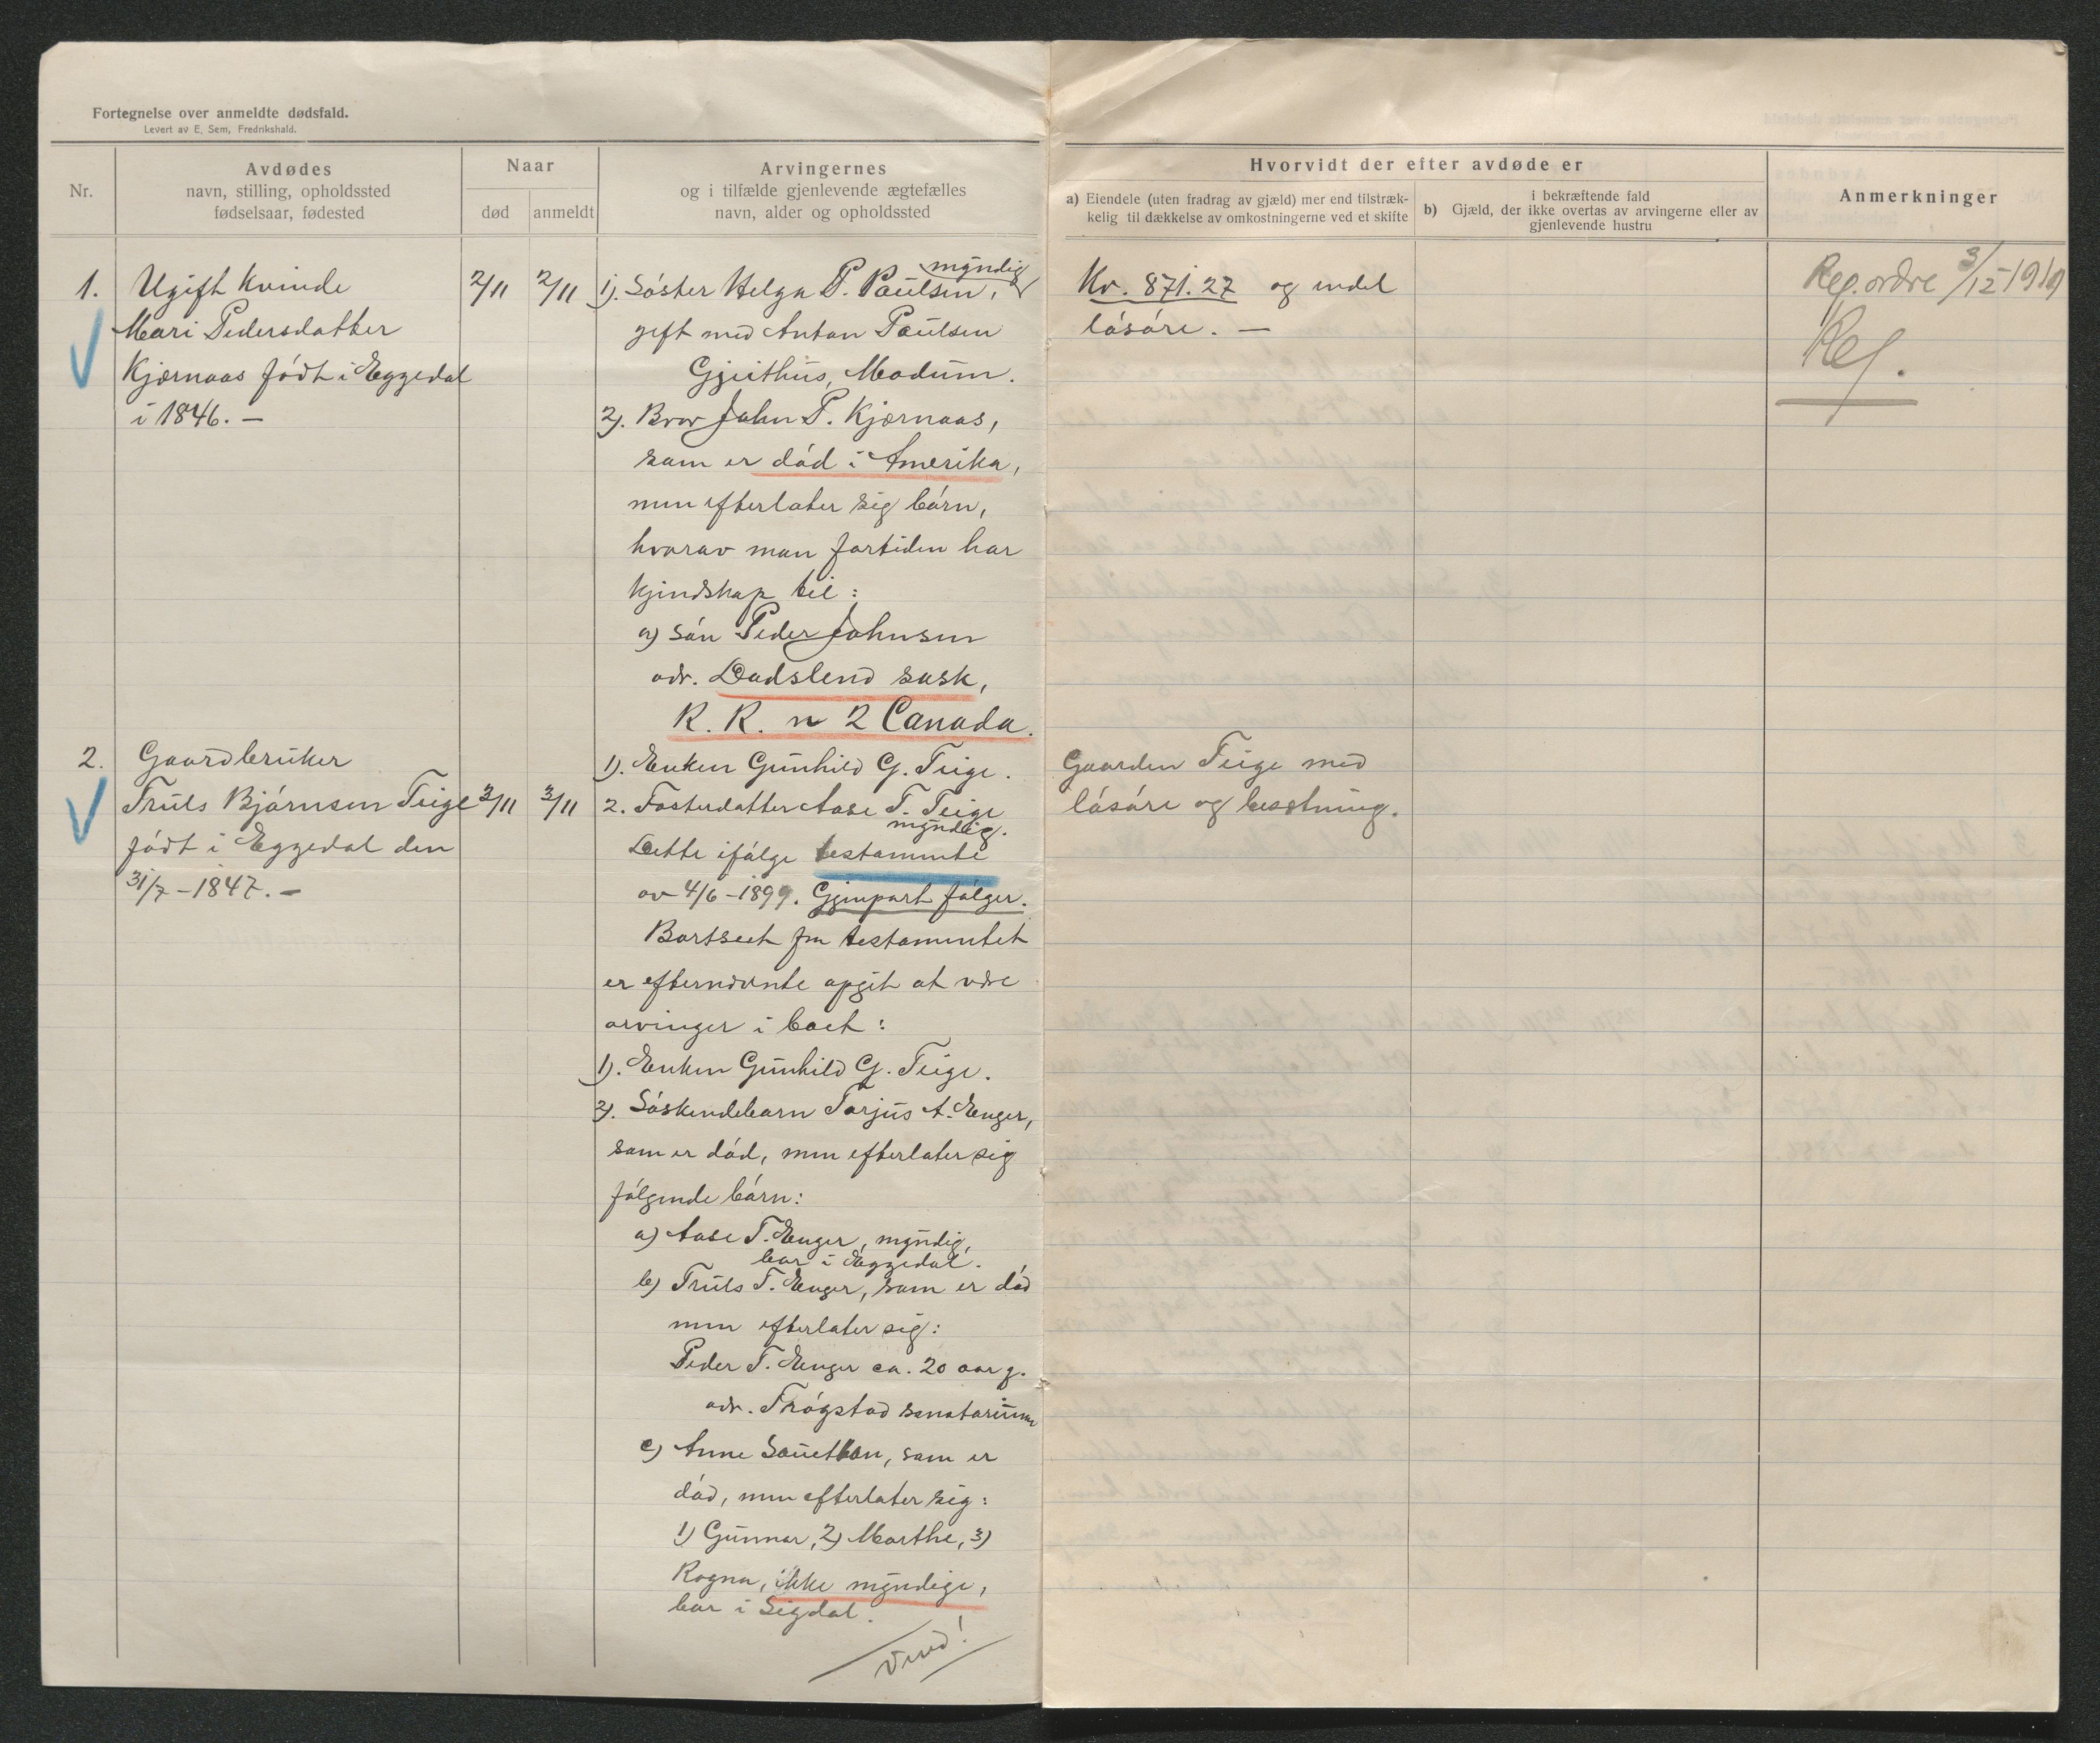 Fortegnelse over anmeldte dødsfald.
Levert av E. Sem, Fredrikshald.
Nr.
Avdødes
navn, stilling, opholdssted
fødselsaar, fødested
Naar
død
anmeldt
Arvingernes
og i tilfælde gjenlevende ægtefælles
navn, alder og opholdssted
Hvorvidt der efter avdøde er
a) Eiendele (uten fradrag av gjæld) mer end tilstræk-
kelig til dækkelse av omkostningerne ved et skifte
b)
i bekræftende fald
Gjæld, der ikke overtas av arvingerne eller av
gjenlevende hustru
Anmerkninger
1.
Ugift kvinde
Mari Pedersdatter
Kjørnaas født i Eggedal
i 1846. —
2/11
2/11
myndig
1). Søster Helga P. Paulsen,
gift med Anton Paulsen
Gjeithus, Modum.
2). Bror John P. Kjørnaas,
som er død i Amerika,
men efterlater sig børn,
hvorav man fortiden har
kjendskap til:
a) Søn Peder Johnsen
adr. Dadslend sask,
R. R. n 2 Canada.
Kr. 871.27 og endel
løsøre. —
Reg. ordre 3/12-1919
Reg.
2.
Gaardbruker
Truls Bjørnsen Teige
født i Eggedal den
31/7 – 1847. –
3/11
3/11
1). Enken Gunhild G. Teige.
2. Fosterdatter Aase T. Teige
myndig.
Dette ifølge testamente
av 4/6 – 1899. Gjenpart følger.
Bortseet fra testamentet
er efternævnte opgit at være
arvinger i boet:
1). Enken Gunhild G. Teige.
2). Søskendebarn Torjus A. Enger,
som er død, men efterlater sig
følgende børn:
a) Aase T. Enger, myndig,
bor i Eggedal.
b) Truls T. Enger, som er død
men efterlater sig:
Peder T. Enger ca. 20 aar g.
adr. Trøgstad sanatorium
c) Anne, som er
død, men efterlater sig:
1) Gunnar, 2) Marthe, 3)
Ragna, ikke myndige,
bor i Sigdal.
Vend!
Gaarden Teige med
løsøre og besetning.